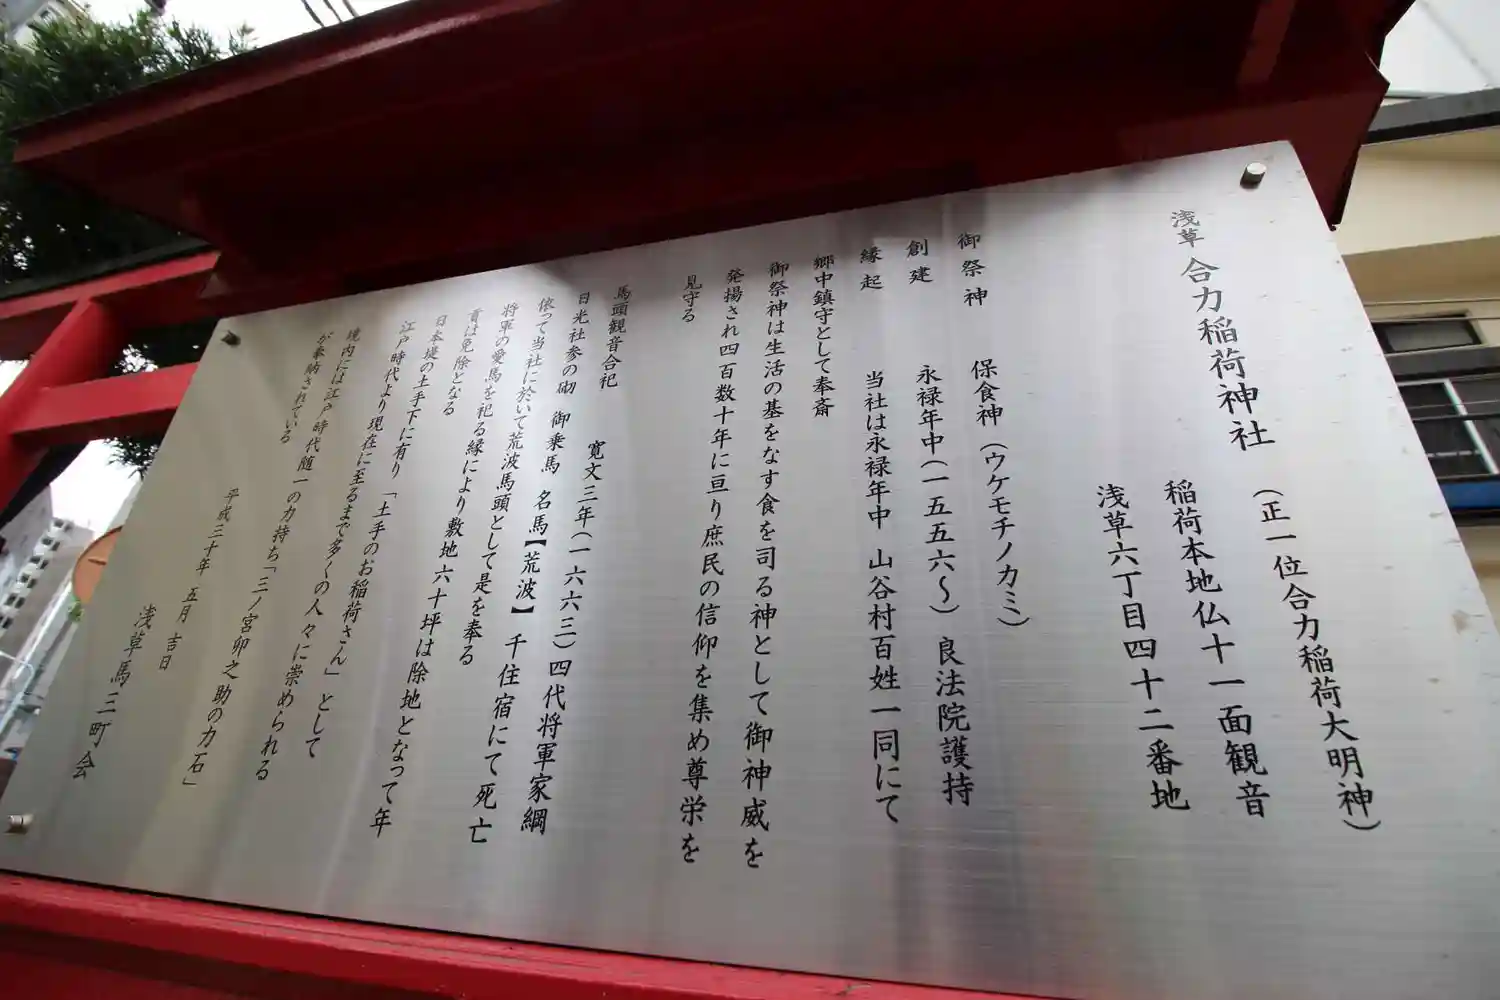 浅草 合力稲荷神社 (正一位合力稲荷大明神)
稲荷本地仏十一面観音
浅草六丁目四十二番地
御祭神 保食神(ウケモチノカミ)
創建 永禄年中(一五五六～)良法院護持
縁起 当社は永禄年中 山谷村百姓一同にて
郷中鎮守として奉斎
御祭神は生活の基をなす食を司る神として御神威を
発揚され四百数十年に亘り庶民の信仰を集め尊栄を
見守る
馬頭観音合祀 寛文三年(一六六三)四代将軍家綱
日光社参の砌 御乗馬 名馬【荒波】千住宿にて死亡
依って当社に於いて荒波馬頭として是を奉る
将軍の愛馬を祀る縁により敷地六十坪は除地となって年
貢は免除となる
日本堤の土手下に有り「土手のお稲荷さん」として
江戸時代より現在に至るまで多くの人々に崇められる
境内には江戸時代随一の力持ち「三ノ宮卯之助の力石」
が奉納されている
平成三十年 五月 吉日
浅草馬三町会